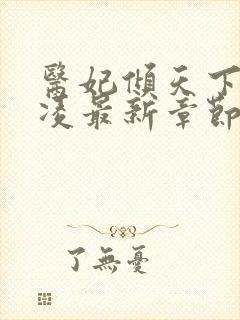 醫妃傾天下
凌最新章節
了無憂